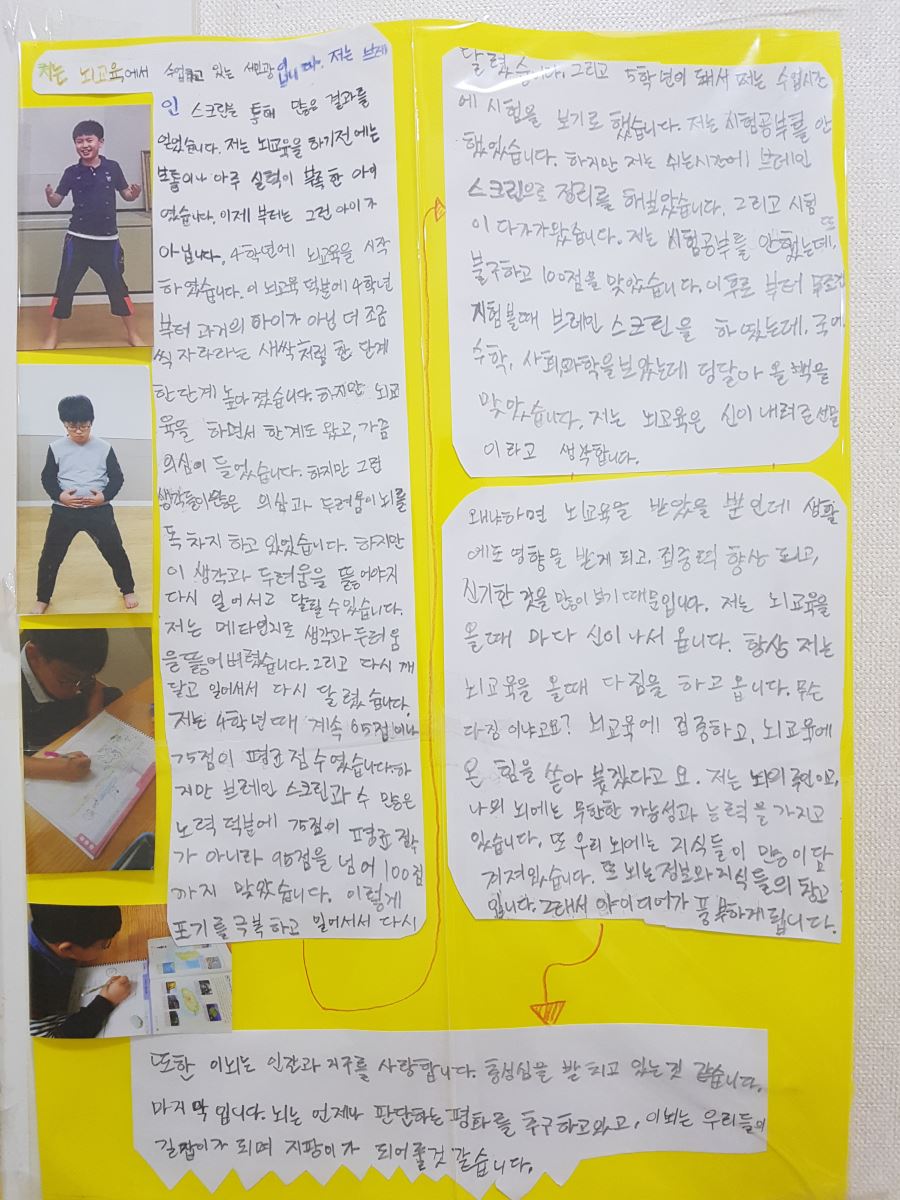 저는 뇌교육에서 수업하고 있는 서민광입니다. 저는 브레
인 스크린을 통해 많은 결과를
얻었습니다. 저는 뇌교육을 하기전에는
보통이나 아주 실력이 부족한 아이
였습니다. 이제 부터는 그런 아이가
아닙니다. 4학년에 뇌교육을 시작
하였습니다. 이 뇌교육 덕분에 4학년
부터 과거의 아이가 아닌 더 조금
씩 자라라는 새싹처럼 한 단계
한단계 높아 졌습니다. 하지만 뇌교
육을 하면서 한계도 왔고, 가끔
의심이 들었습니다. 하지만 그런
생각들이 의심과 두려움이 뇌를
독차지 하고 있었습니다. 하지만
이 생각과 두려움을 뚫어야지
다시 일어서고 달릴 수있습니다.
저는 메타인지로 생각과 두려움
을 뚫어 버렸습니다. 그리고 다시 깨
닫고 일어서서 다시 달렸습니다.
저는 4학년때 계속 65점이나
75점이 평균 점수였습니다. 하
지만 브레인 스크린과 수 많은
노력 덕분에 75점이 평균 점수
가 아니라 95점을 넘어 100점
까지 맞았습니다. 이렇게
포기를 극복하고 일어서서 다시
달렸습니다. 그리고 5학년이 돼서 저는 수업시간
에 시험을 보기로 했습니다. 저는 시험공부를 안
했었습니다. 하지만 저는 쉬는시간에 브레인
스크린으로 정리를 해보았습니다. 그리고 시험
이 다가왔습니다. 저는 시험공부를 안했는데도
불구하고 100점을 맞았습니다. 이후로 부터 무조건
시험볼때 브레인 스크린을 하였는데, 국어,
수학, 사회, 과학을 보았는데 덩달아 올 백을
맞았습니다. 저는 뇌교육은 신이 내려준 선물
이라고 생각합니다.
왜냐하면 뇌교육을 받았을 뿐인데 생활
에도 영향을 받게 되고, 집중력 향상 되고,
신기한 것을 많이 보기 때문입니다. 저는 뇌교육을
올때 마다 신이 나서 옵니다. 항상 저는
뇌교육을 올때 다짐을 하고 옵니다. 무슨
다짐 이냐고요? 뇌교육에 집중하고, 뇌교육에
온 힘을 쏟아 붓겠다고 요. 저는 뇌의 주인이고,
나의 뇌에는 무한한 가능성과 능력을 가지고
있습니다. 또 우리 뇌에는 지식들이 많이 담
겨져있습니다. 또 뇌는 정보와 지식들의 창고
입니다. 그래서 아이디어가 풍부하게 됩니다.
또한 이뇌는 인간과 지구를 사랑합니다. 충성심을 발치고 있는것 같습니다.
마지막 입니다. 뇌는 언제나 판단하는 평화를 추구하고있고, 이뇌는 우리들의
길잡이가 되며 지팡이가 되어줄것 같습니다.